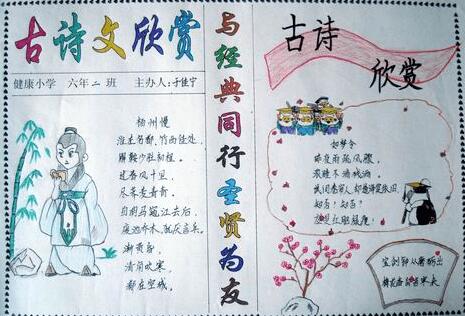 古诗文欣赏
健康小学 六年二班 主办人:于佳宁
杨州慢
淮左名都,竹西佳处,
解鞍少驻初程。
过春风十里,
尽荠麦青青。
自胡马窥江去后,
废池乔木,犹厌言兵。
渐黄昏
清角吹寒,
都在空城。
与经典同行圣贤为友
古诗
欣赏
如梦令
昨夜雨疏风骤,
浓睡不消残酒
试问卷帘人,却道海棠依旧
知否?知否?
宝剑锋从磨砺出
梅花香自苦寒来